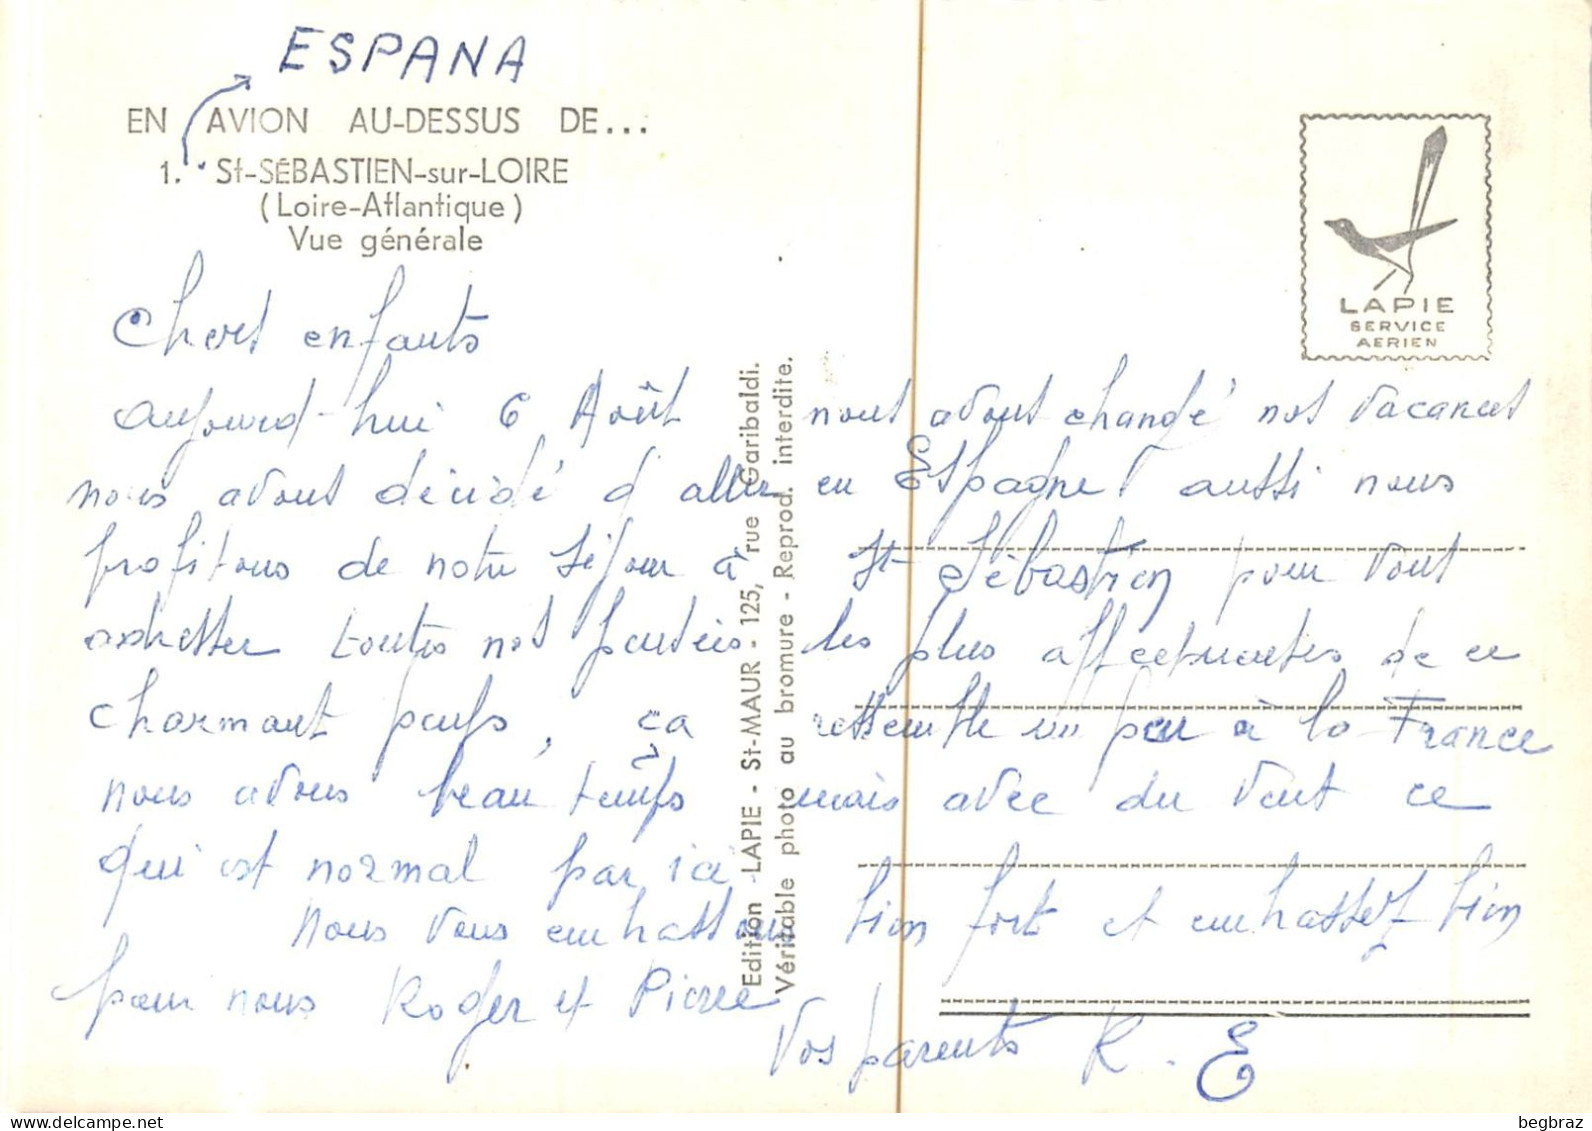 ESPANA
EN AVION AU-DESSUS DE...
1. St-SÉBASTIEN-sur-LOIRE
(Loire-Atlantique)
Vue générale
LAPIE
SERVICE
AERIEN
Chers enfants
aujourd-hui 6 Août nous avons changé nos vacances
nous avons décidé d'aller en Espagne aussi nous
profitons de notre séjour à St Sébastien pour vous
adresser toutes nos pensées les plus affectueuses de ce
charmant pays, ça ressemble un peu à la France
nous avons beau temps mais avec du vent ce
qui est normal par ici
Nous vous embrassons bien fort et embrassez bien
pour nous Roger et Pierre
Vos parents R. E
Edition LAPIE - St-MAUR - 125, rue Garibaldi.
Véritable photo au bromure - Reprod. interdite.
begbraz